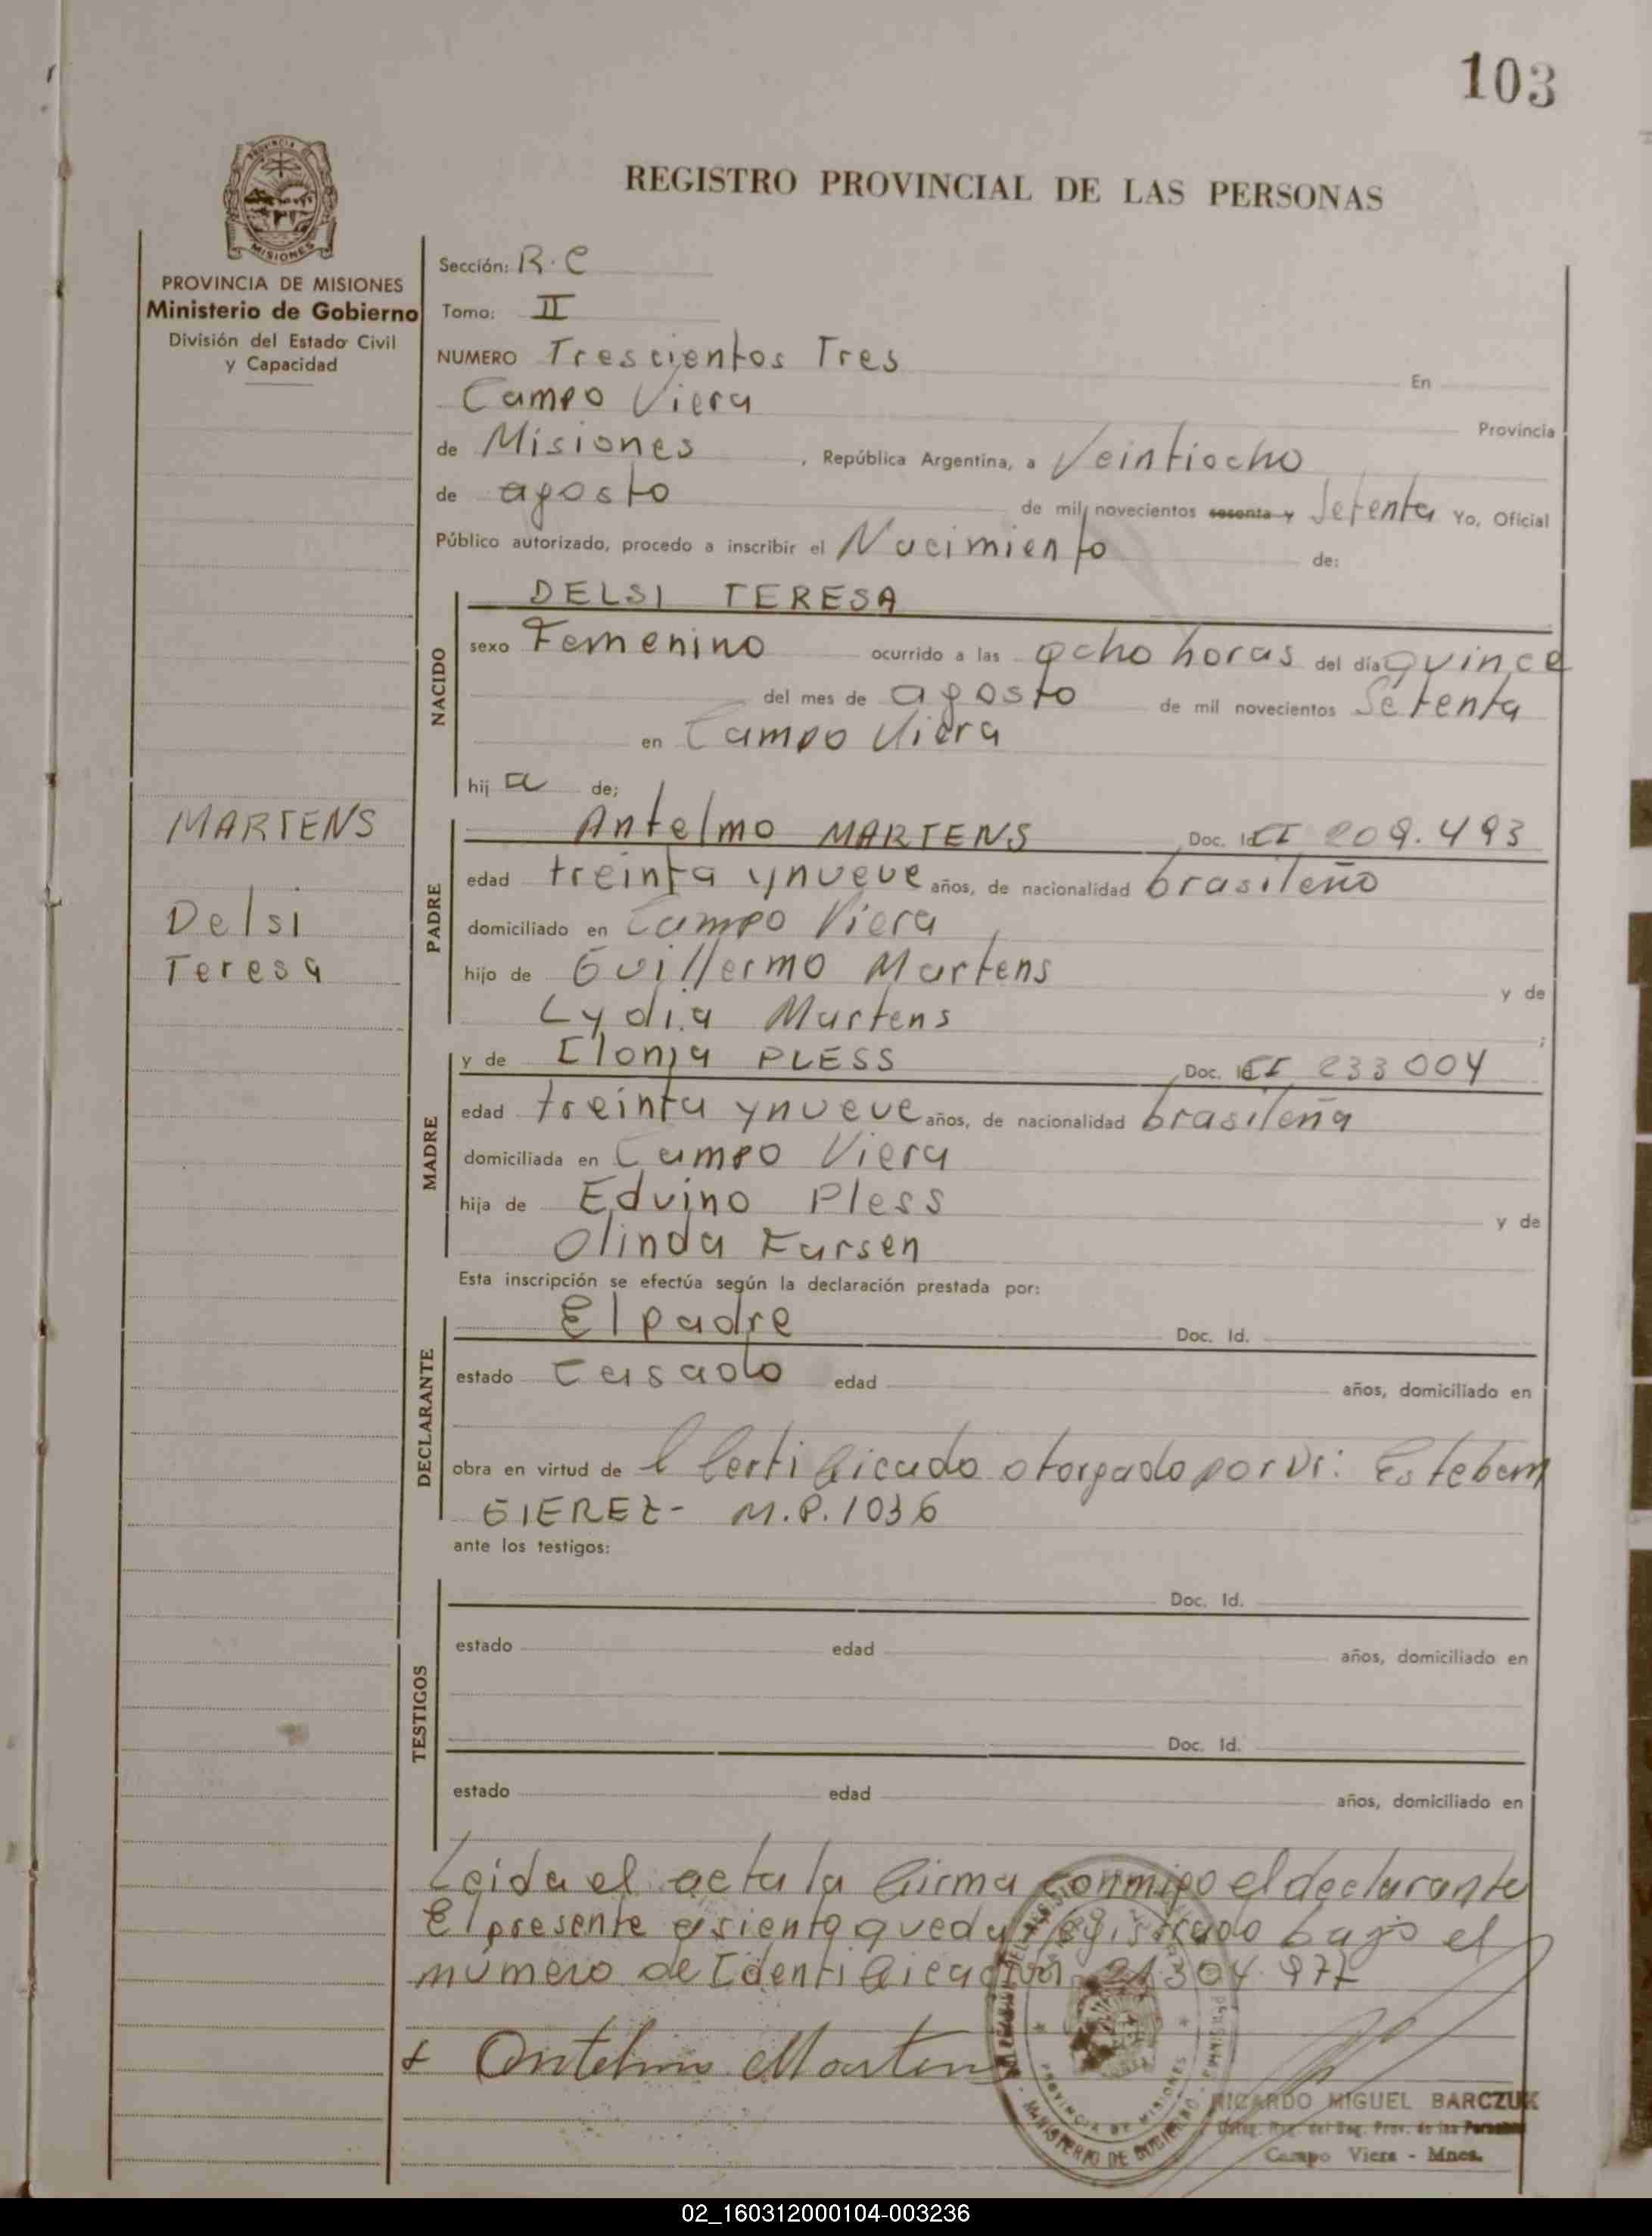 103
PROVINCIA
MISIONES
REGISTRO PROVINCIAL DE LAS PERSONAS
PROVINCIA DE MISIONES
Ministerio de Gobierno
División del Estado Civil
y Capacidad
Sección: R.C
Tomo: II
NUMERO Trescientos Tres En
Campo Viera Provincia
de Misiones, República Argentina, a Veintiocho
de agosto de mil novecientos sesenta y Setenta Yo, Oficial
Público autorizado, procedo a inscribir el Nacimiento de:
NACIDO
DELSI TERESA
sexo Femenino ocurrido a las ocho horas del día quince
del mes de agosto de mil novecientos Setenta
en Campo Viera
hij a de;
MARTENS
Delsi
Teresa
PADRE
Antelmo MARTENS Doc. Id CI 209.493
edad treinta y nueve años, de nacionalidad brasileño
domiciliado en Campo Viera
hijo de Guillermo Martens y de
Lydia Martens ;
MADRE
y de Ilonia PLESS Doc. Id CI 233004
edad treinta y nueve años, de nacionalidad brasileña
domiciliada en Campo Viera
hija de Eduino Pless y de
Olinda Karsen
Esta inscripción se efectúa según la declaración prestada por:
DECLARANTE
El padre Doc. Id.
estado Casado edad años, domiciliado en
obra en virtud de l Certificado otorgado por Dr: Esteban
GIEREZ- M.P.1036
ante los testigos:
TESTIGOS
Doc. Id.
estado edad años, domiciliado en
Doc. Id.
estado edad años, domiciliado en
Leida el acta la firma conmigo el declarante
El presente asiento queda registrado bajo el
número de Identificación 21.304.977
+ Antelmo Martens
PROVINCIA DE MISIONES
MINISTERIO DE GOBIERNO
RICARDO MIGUEL BARCZUK
Deleg. Reg. del Reg. Prov. de las Personas
Campo Viera - Mnes.
02_160312000104-003236